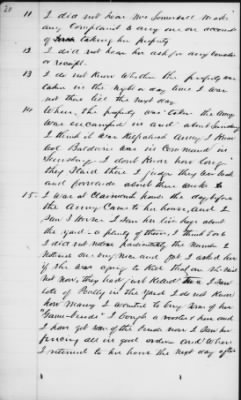 20
11 I did not hear Mrs Somersall make
any Complaint to any one on account
of taking her property
12 I did not hear her ask for any voucher
or receipt.
13 I do not Know whether the property was
taken in the night or day time I was
not there till the next day
14 When the property was taken the Army
was encamped in and about Sunsbury
I think it was Kilpatrick Army I Know
Genl Baldwin was in Command in
Sunsbury. I don't Know how long
they Staid there I judge they were back
and forwards about three weeks
15 - I was at Claremonts place the day before
the Army Came to her house, and I
Saw 3 Horses I Saw her live hogs about
the yard - a plenty of them, I think 5 or 6
I did not notice particularly the number I
noticed one very nice and fat I asked her
if she was going to Kill that one She said
not now, they had just Killed I saw
lots of Poultry in the Yard I do not Know
how many I wanted to buy some of her
"Game-birds" I bought a rooster & hen and
I have got some of the breed now I saw her
fencing all in good order and When
I returned to her house the next day after